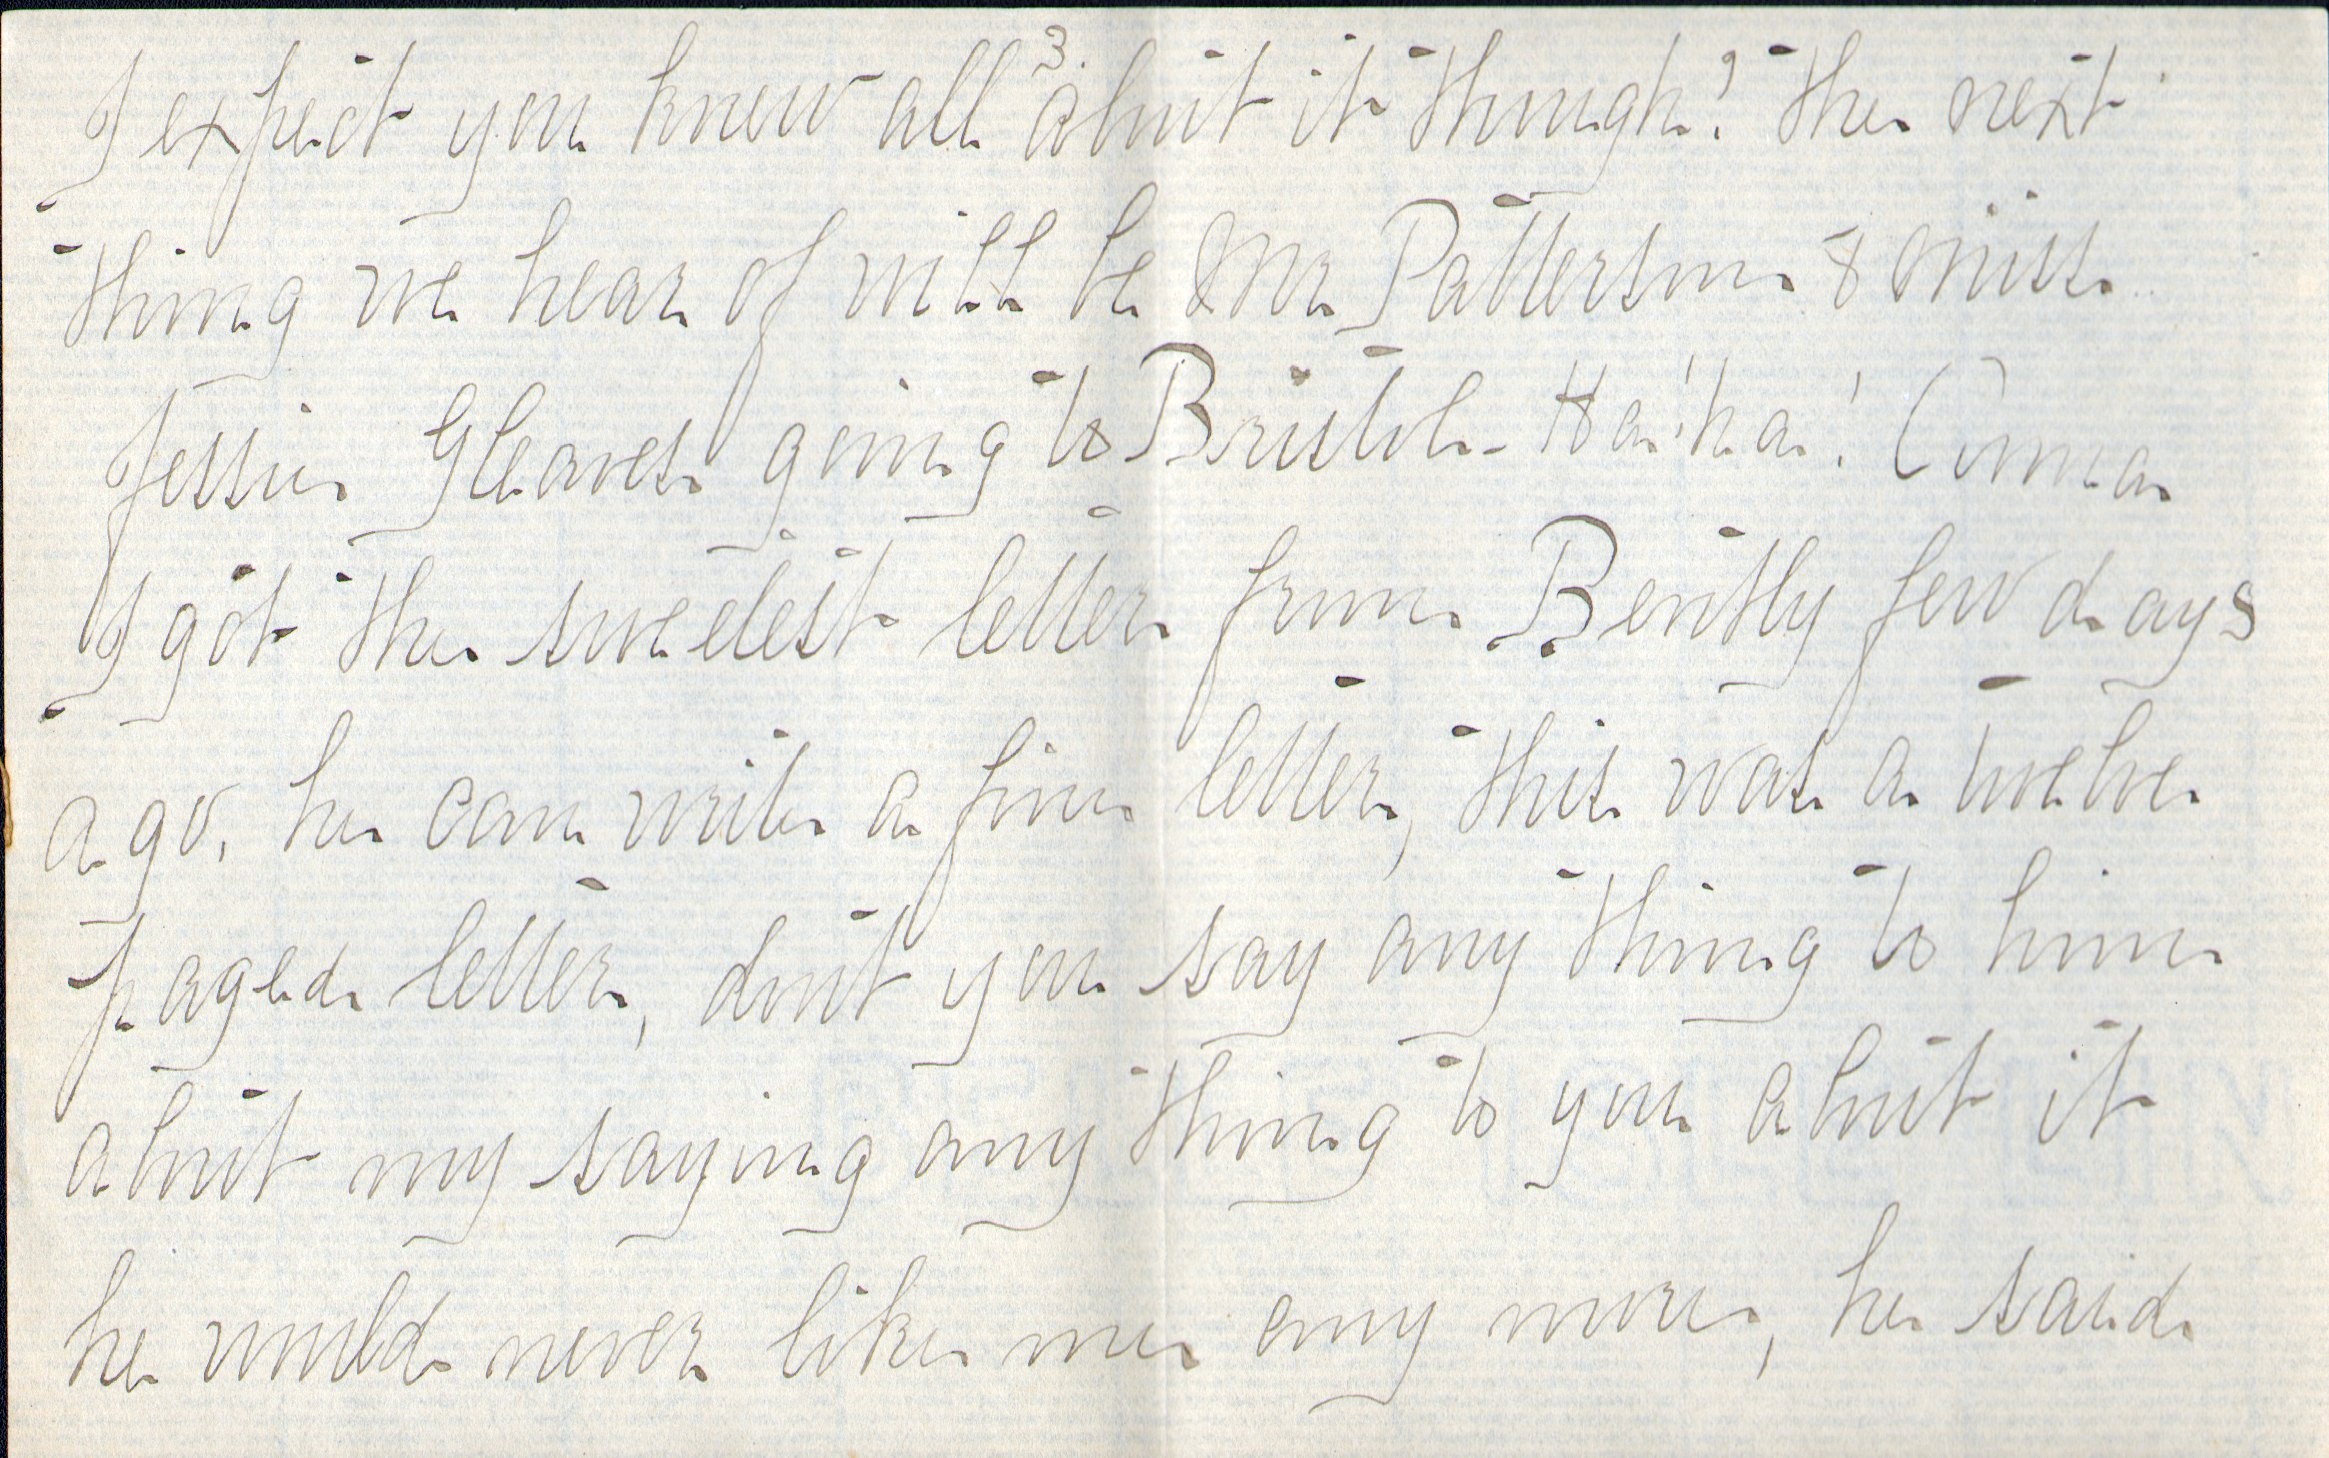 3.
I expect you knew all about it though! The next
thing we hear of will be Mr Patterson & Miss
Jessie Gleaves going to Bristol - Ha! ha!
I got the sweetest letter from Bently few days
ago, he can write a fine letter, this was a twelve
paged letter, don't you say any thing to him
about my saying any thing to you about it
he would never like me any more, he said